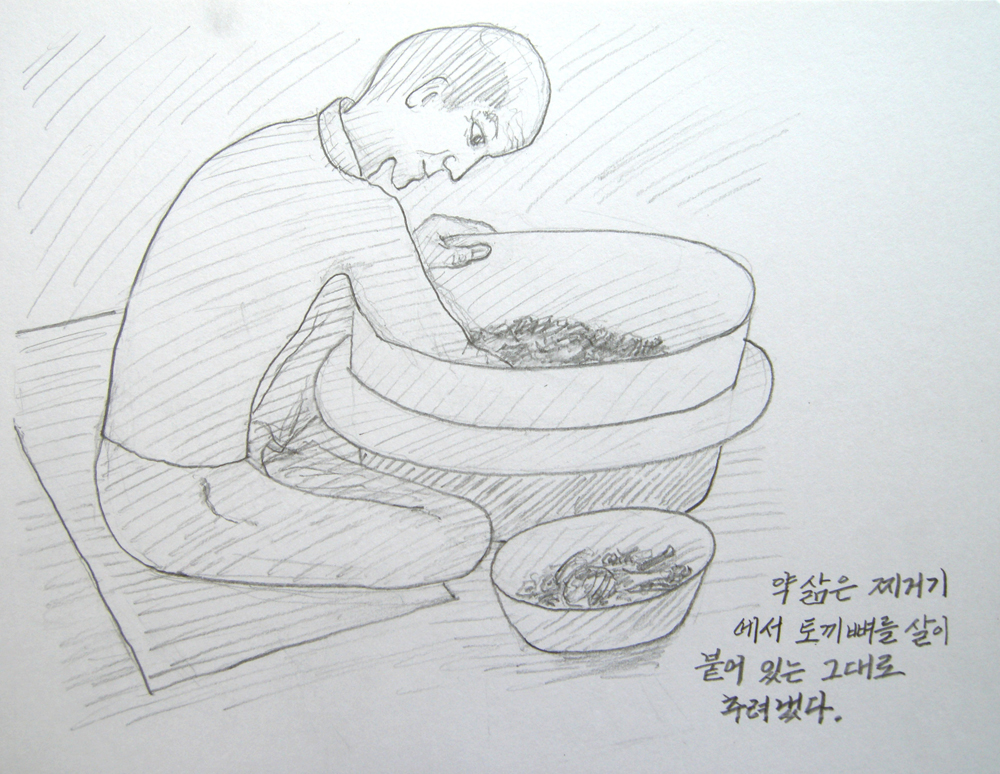 약 삶은 찌거기
에서 토끼뼈를 살이
붙어 있는 그대로
추려냈다.